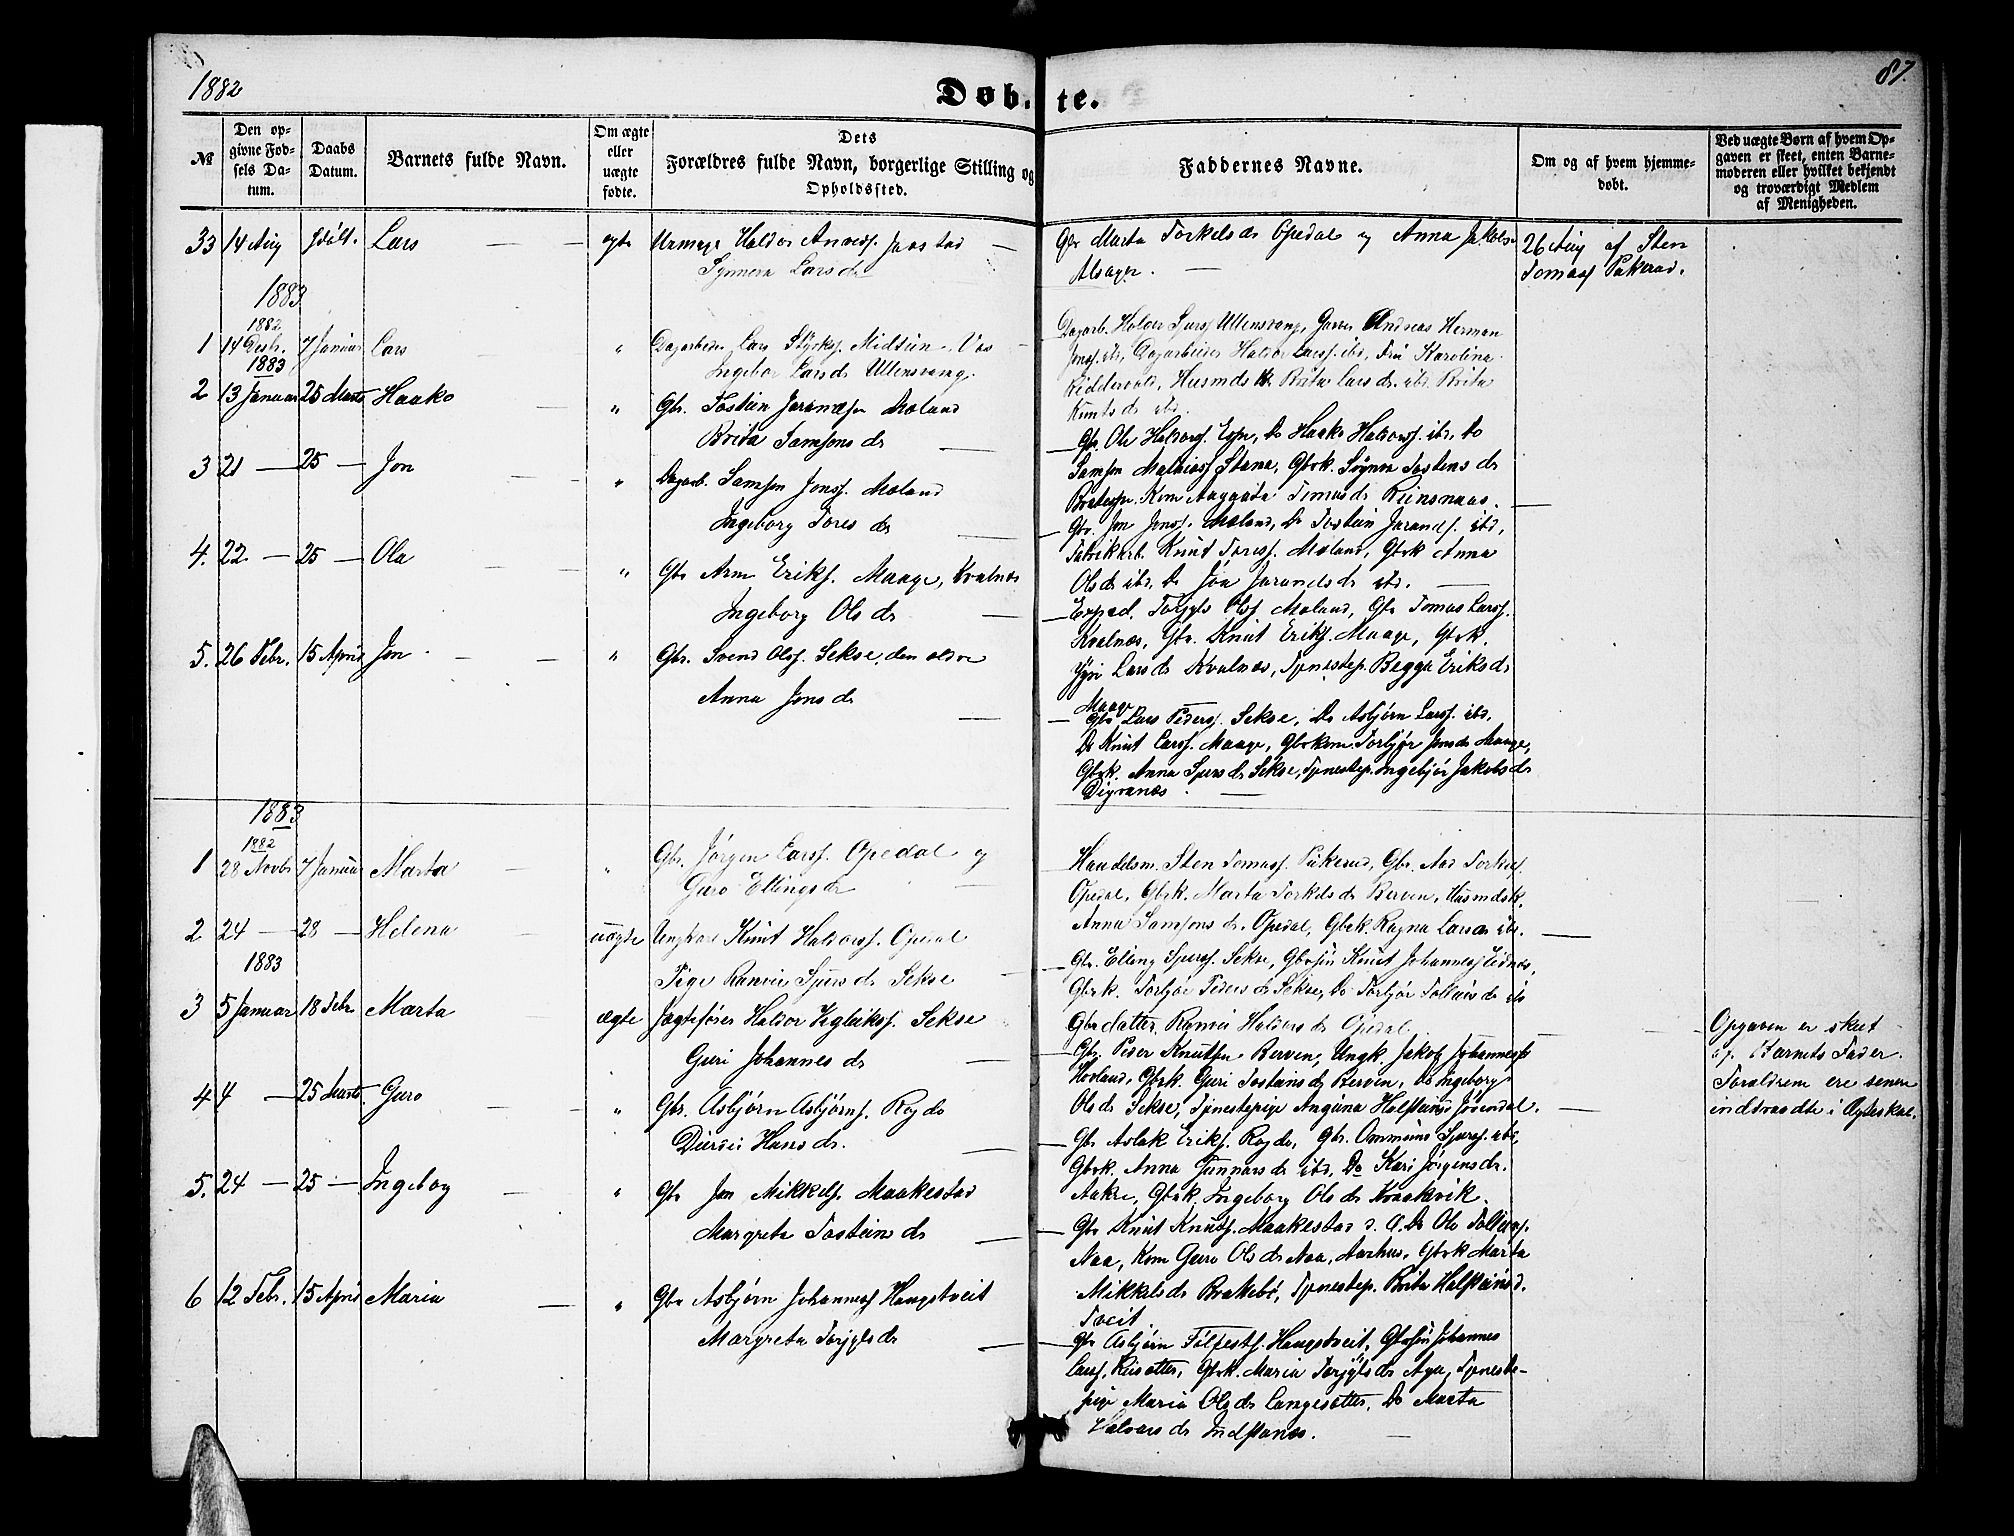 1882
Døbte.
87.
№
Den op-
givne Fød-
sels Da-
tum.
Daabs
Datum.
Barnets fulde Navn.
Om ægte
eller
uægte
fødte.
Dets
Forældres fulde Navn, borgerlige Stilling og
Opholdssted.
Faddernes Navne.
Om og af hvem hjemme-
døbt.
Ved uægte Børn af hvem Op-
gaven er skeet, enten Barne-
moderen eller hvilket bekjendt
og troværdigt Medlem
af Menigheden.
33 14 Aug Lars — — Haldor Jaastad —
Synneva Larsdr
Gbr Marta Torkelsdr Opedal og Anna
Alsager. —
26 Aug af Sten
Tomass
1883
1882
1 14 Decbr. 7 Januar Lars " Dagarbeider Lars Styrks. Midtun. Vos —
Ingebor Larsdr Ullensvang.
Dagarb. Haldor Sjurss Ullensvang, Andreas Herman
Jonss. ibd, Dagarbeider Haldor Larss. ibd, Fru Karolina
Riddervold, Husmds K. Brita Larsdr. ibd. Brita
Knutsdr ibd.
1883
2 13 Januar 25 Marts Haako — " Gbr. Tostein Moland
Brita Samsonsdr —
— Gbr. Ole Haldorss. Espe, Do Haako Haldorss. ibd, Do
Samson Stana, Gbrk. Synva Tostensdr
Kone Aaggata Tomasdr Reinsnaas.
3 21 — 25 — Jon — — " Dagarb. Samson Jonss. Moland
Ingeborg Toresdr —
— Gbr. Jon Jonss. Moland, Do Tostein Jarands. ibd,
Fabrikarb. Knut Toress. Moland, Gbrk Anna
Olsdr ibd, Do Jøa Jarandsdr ibd. —
4. 22 — 25 — Ola — — " Gbr Arne Eriks. Maage, Kvalnes
Ingeborg Olsdr —
— Torgils Ols. Moland, Gbr Tomas Larss.
Kvalnes, Gbr. Knut Eriks. Maage, Gbrk.
Larsdr Kvalnes, Tjenestep. Begga Eriksdr
Maage
5. 26 Febr. 15 April Jon. — — " Gbr. Svend Olss. Sekse, den eldre
Anna Jonsdr —
— Gbr Lars Peders. Sekse, Do Asbjørn Larss. ibd,
Do Knut Larss. Maage, Gbrkone Torbjør Jonsdr Maage,
Gbrk. Anna Sjursdr Sekse, Tjenestep. Ingebjør Jakobsdr
Digranes. —
1883
1882
1 28 Novbr 7 Januar Marta — " Gbr. Jørgen Larss. Opedal og
Guro Ellingsdr —
Handelsm. Sten Tomass. Gbr. Aad Torkels.
Opedal, Gbrk. Marta Torkelsdr Berven, Husmdsk.
Anna Samsonsdr. Opedal, Gbrk. Ragna Larsdr ibd.
2 24 — 28 — Helena — uægte Ungkarl Knut Haldorss. Opedal
Pige Ranvei Sjursdr Sekse —
— Gbr. Elling Sjurss. Sekse, Gbrsøn Knut Johanness Eidnes,
Gbrk. Torbjør Pedersdr Sekse, Do Torbjør ibd
Gbrdatter, Ragna Haldorsdr Opedal.
Opgaven er skeet
af Barnets Fader.
Forældrene ere senere
indtraadte i Ægteskab.
1883
3 5 Januar 18 Febr. Marta ægte Jægtefører Haldor Sekse
Guri Johannesdr —
— Gbr. Peder Knutsen Berven, Ungk. Jakob Johannes
Hovland, Gbrk. Guri Tosteinsdr Berven, Do Ingeborg
Olsdr Sekse, Tjenestepige Anguna Jøsendal. —
4 4 — 25 Marts. Guro — — " Gbr. Asbjørn Asbjørns. Rogde
Hansdr. —
— Gbr Aslak Eriks. Rogde, Gbr. Ommund Sjurss. ibd,
Gbrk. Anna Gunnarsdr ibd, Do Kari Jørgensdr.
Aakre, Gbrk. Ingeborg Olsdr Kraakvik.
5. 24 — 25 — Ingeborg — " Gbr Jon Mikkels. Maakestad
Margreta Tosteinsdr —
— Gbr Knut Knuts. Maakestad d. Do Ole
Naa, Kone Guro Olsdr Naa, Aarhus, Gbrk Marta
Mikkelsdr Tjenestep. Brita
Tveit.
6 12 Febr. 15 April Maria — " Gbr Asbjørn Johannes Haugstveit
Margreta Torgilsdr —
— Gbr Asbjørn Haugstveit, Gbrsøn Johannes
Larss, Gbrk. Maria Torgilsdr Aga, Tjeneste-
pige Maria Olsdr Langesætter, Do Marta
Indstanes. —